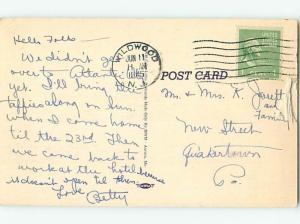 Hello Folks—
We didn't get
over to Atlantic
yet. I'll bring the
along on Sun.
when I come home
'til the 23rd. Then
we come back to
work at the hotel since
it doesn't open 'til then
Love
Betty
WILDWOOD
JUN 11
N.J.
POST CARD
Mr. & Mrs. K. Jarett
and Family
New Street
Quakertown
Pa.